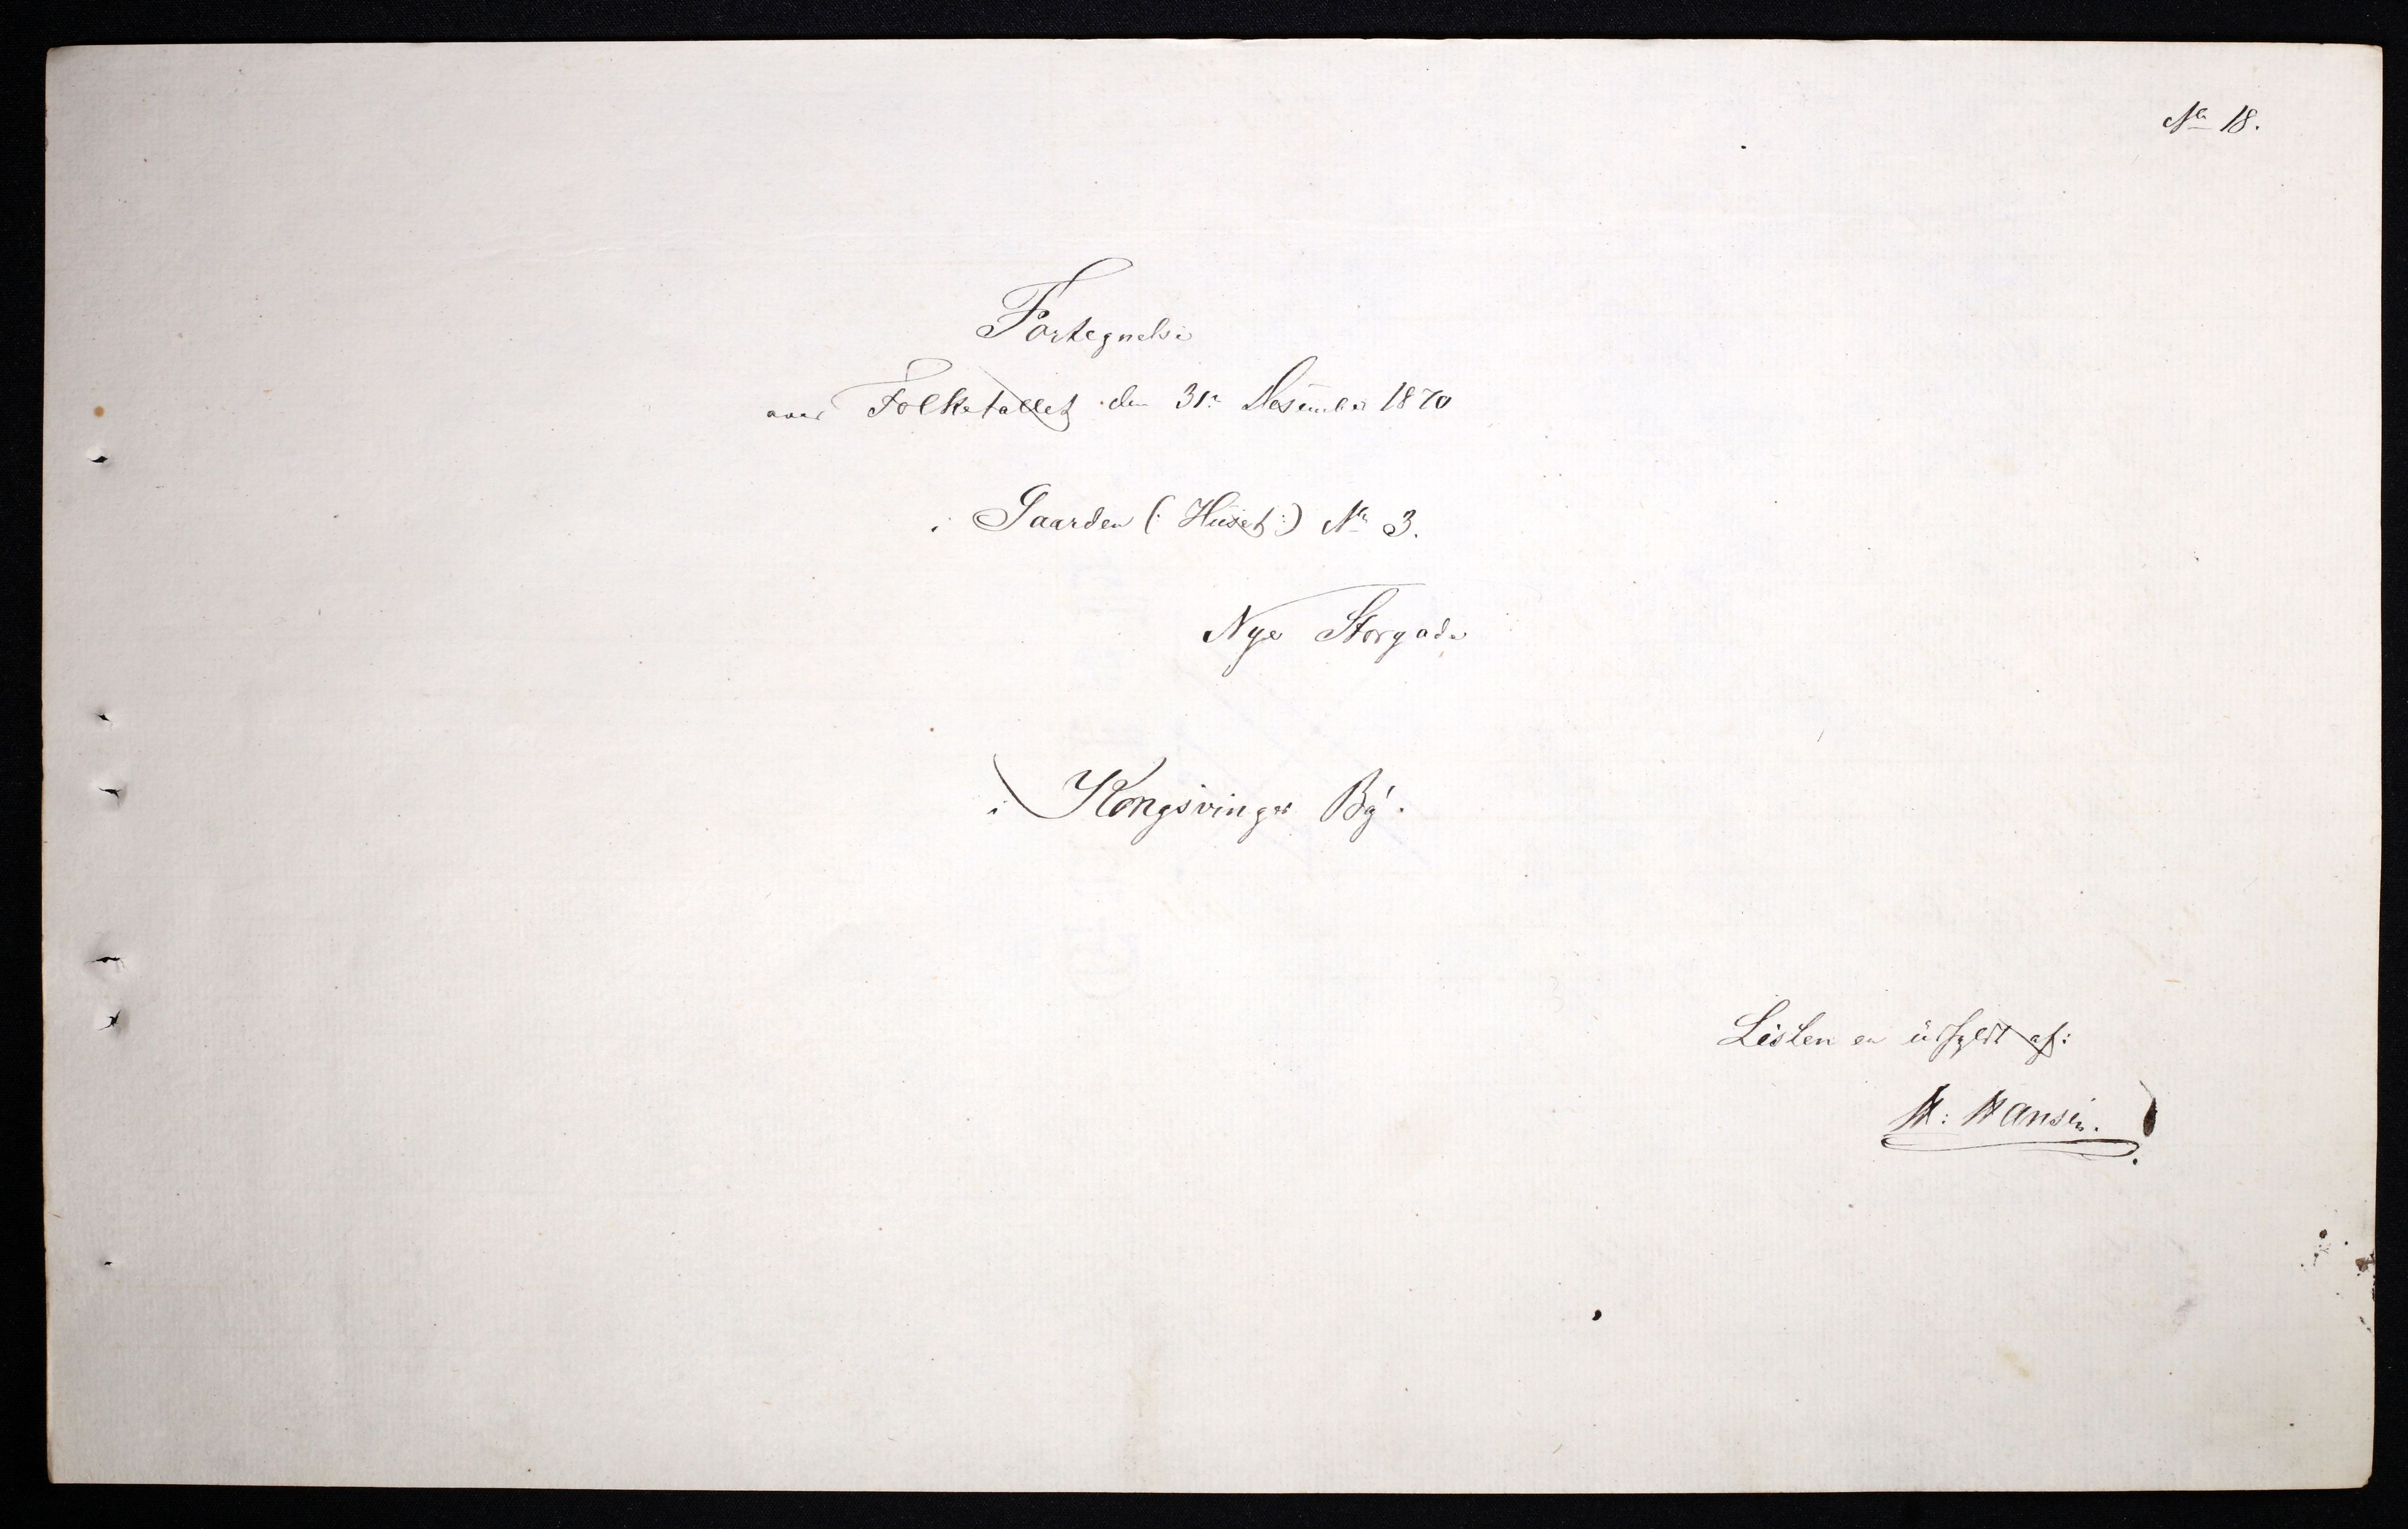 No 18.
Fortegnelse
over Folketallet den 31te Desember 1870
i Gaarden (: Huset :) No 3.
Nye Storgade
i Kongsvinger By.
Listen er udfyldt af:
H: Hansen.